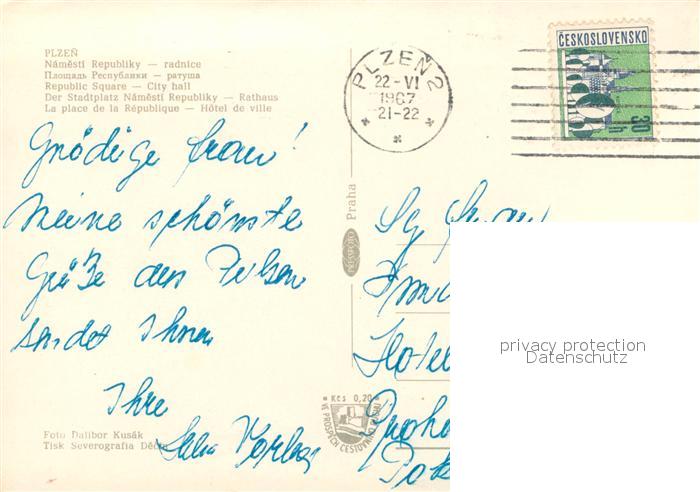 PLZEŇ
Náměstí Republiky — radnice
Площадь Республики — ратуша
Republic Square — City hall
Der Stadtplatz Náměstí Republiky — Rathaus
La place de la République — Hôtel de ville
PLZEŇ 2
22-VI
1967
21-22
ČESKOSLOVENSKO
30 h
Gnädige Frau!
Meine schönste
Grüße aus Pilsen
sendet Ihnen
Ihre
Foto Dalibor Kusák
Tisk Severografia Děčín
Praha
PRESSFOTO
Kčs 0,20
VE PROSPĚCH CESTOVNÍHO RUCHU
Hotel
privacy protection
Datenschutz